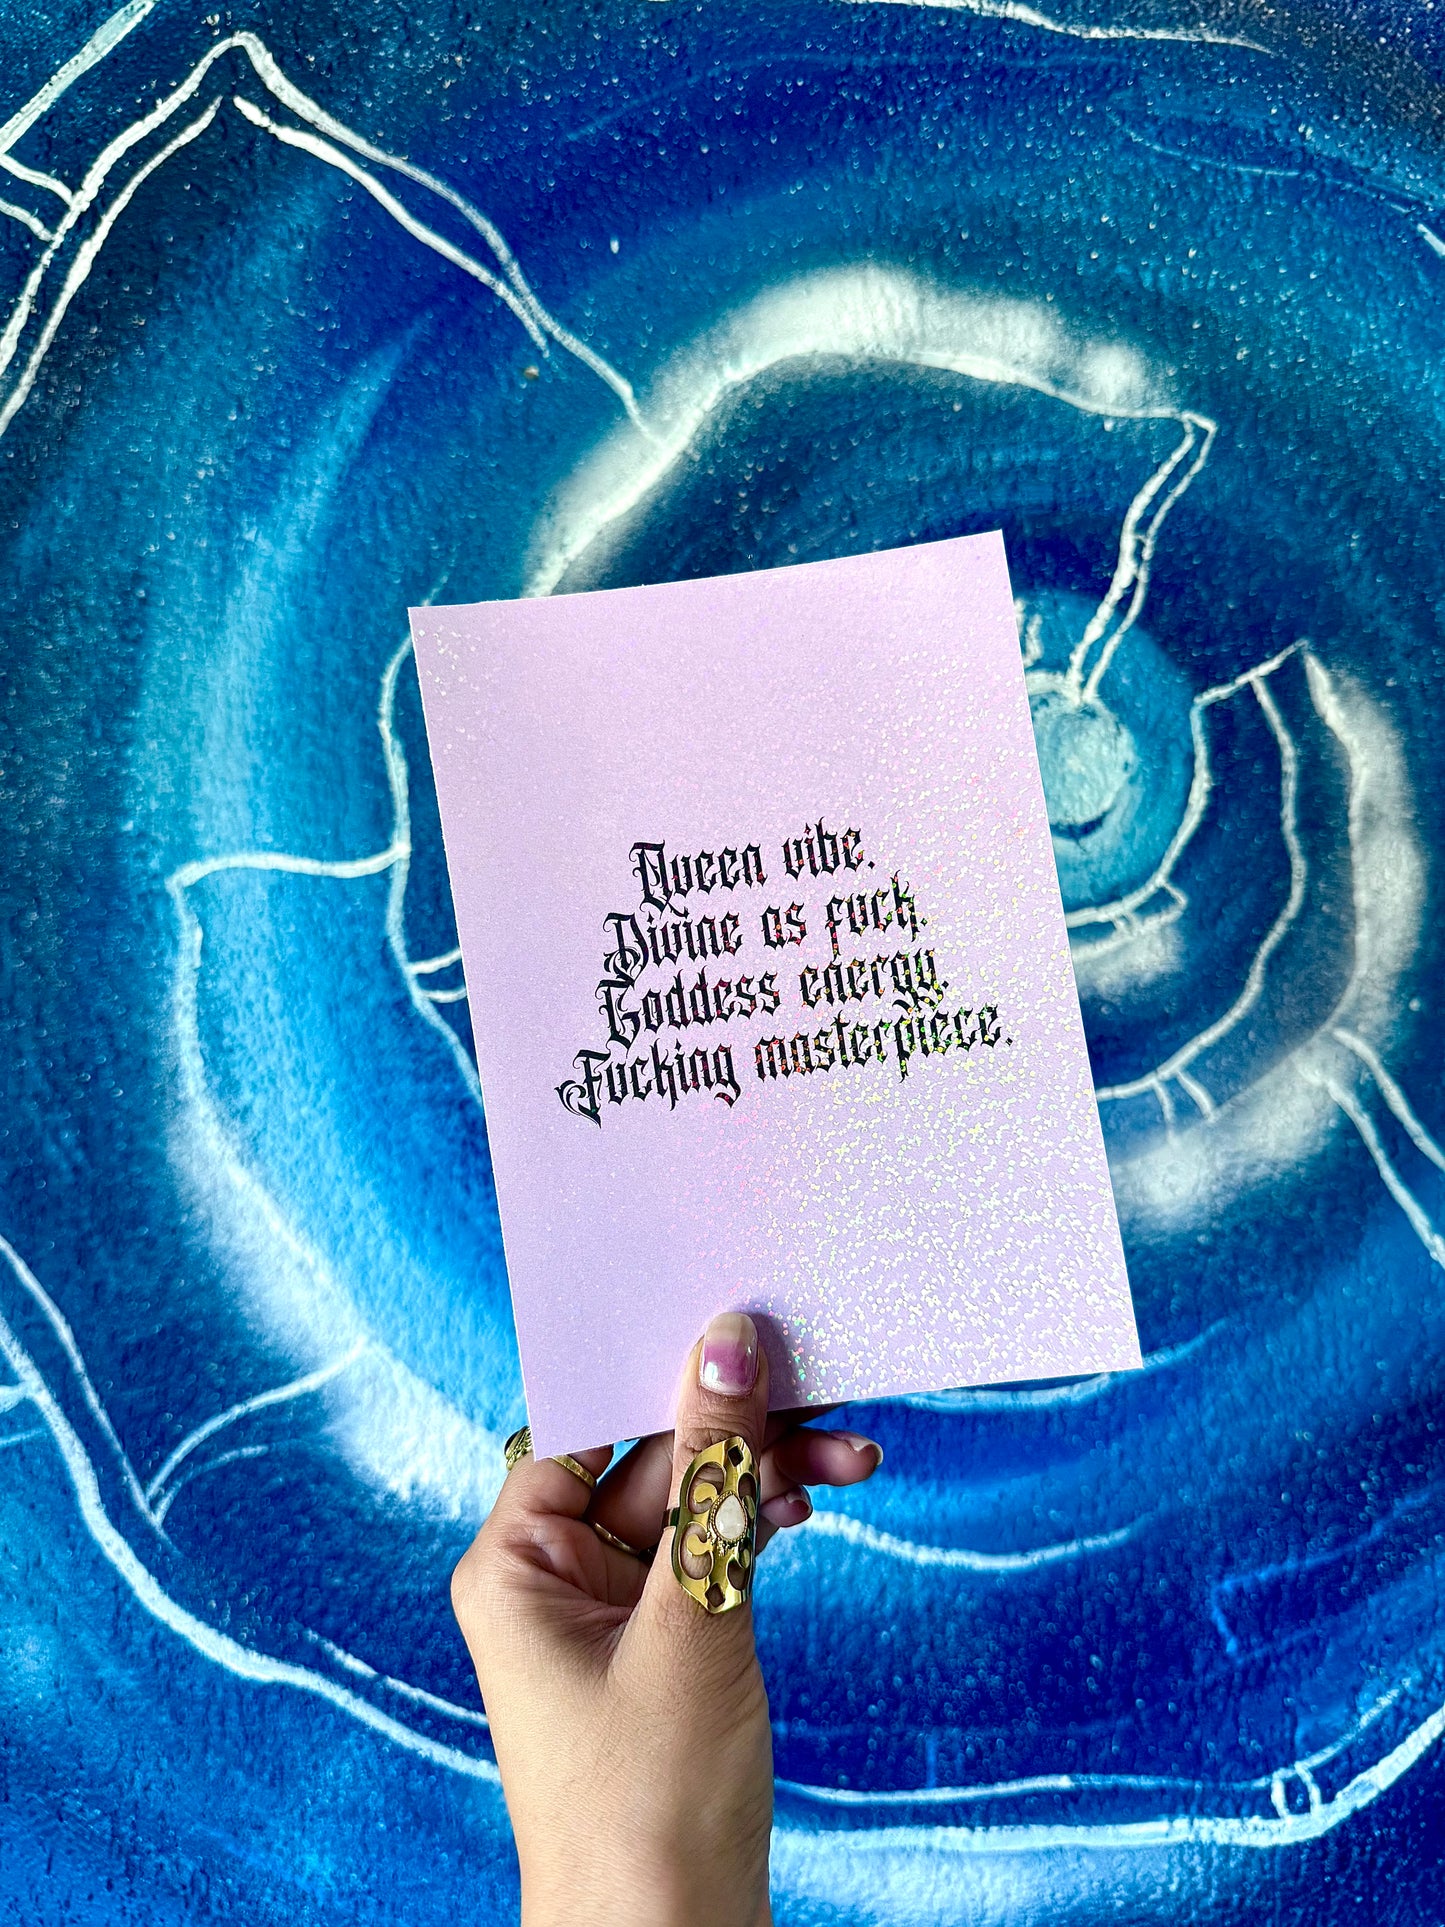 Queen vibe.
Divine as fuck.
Goddess energy.
Fucking masterpiece.